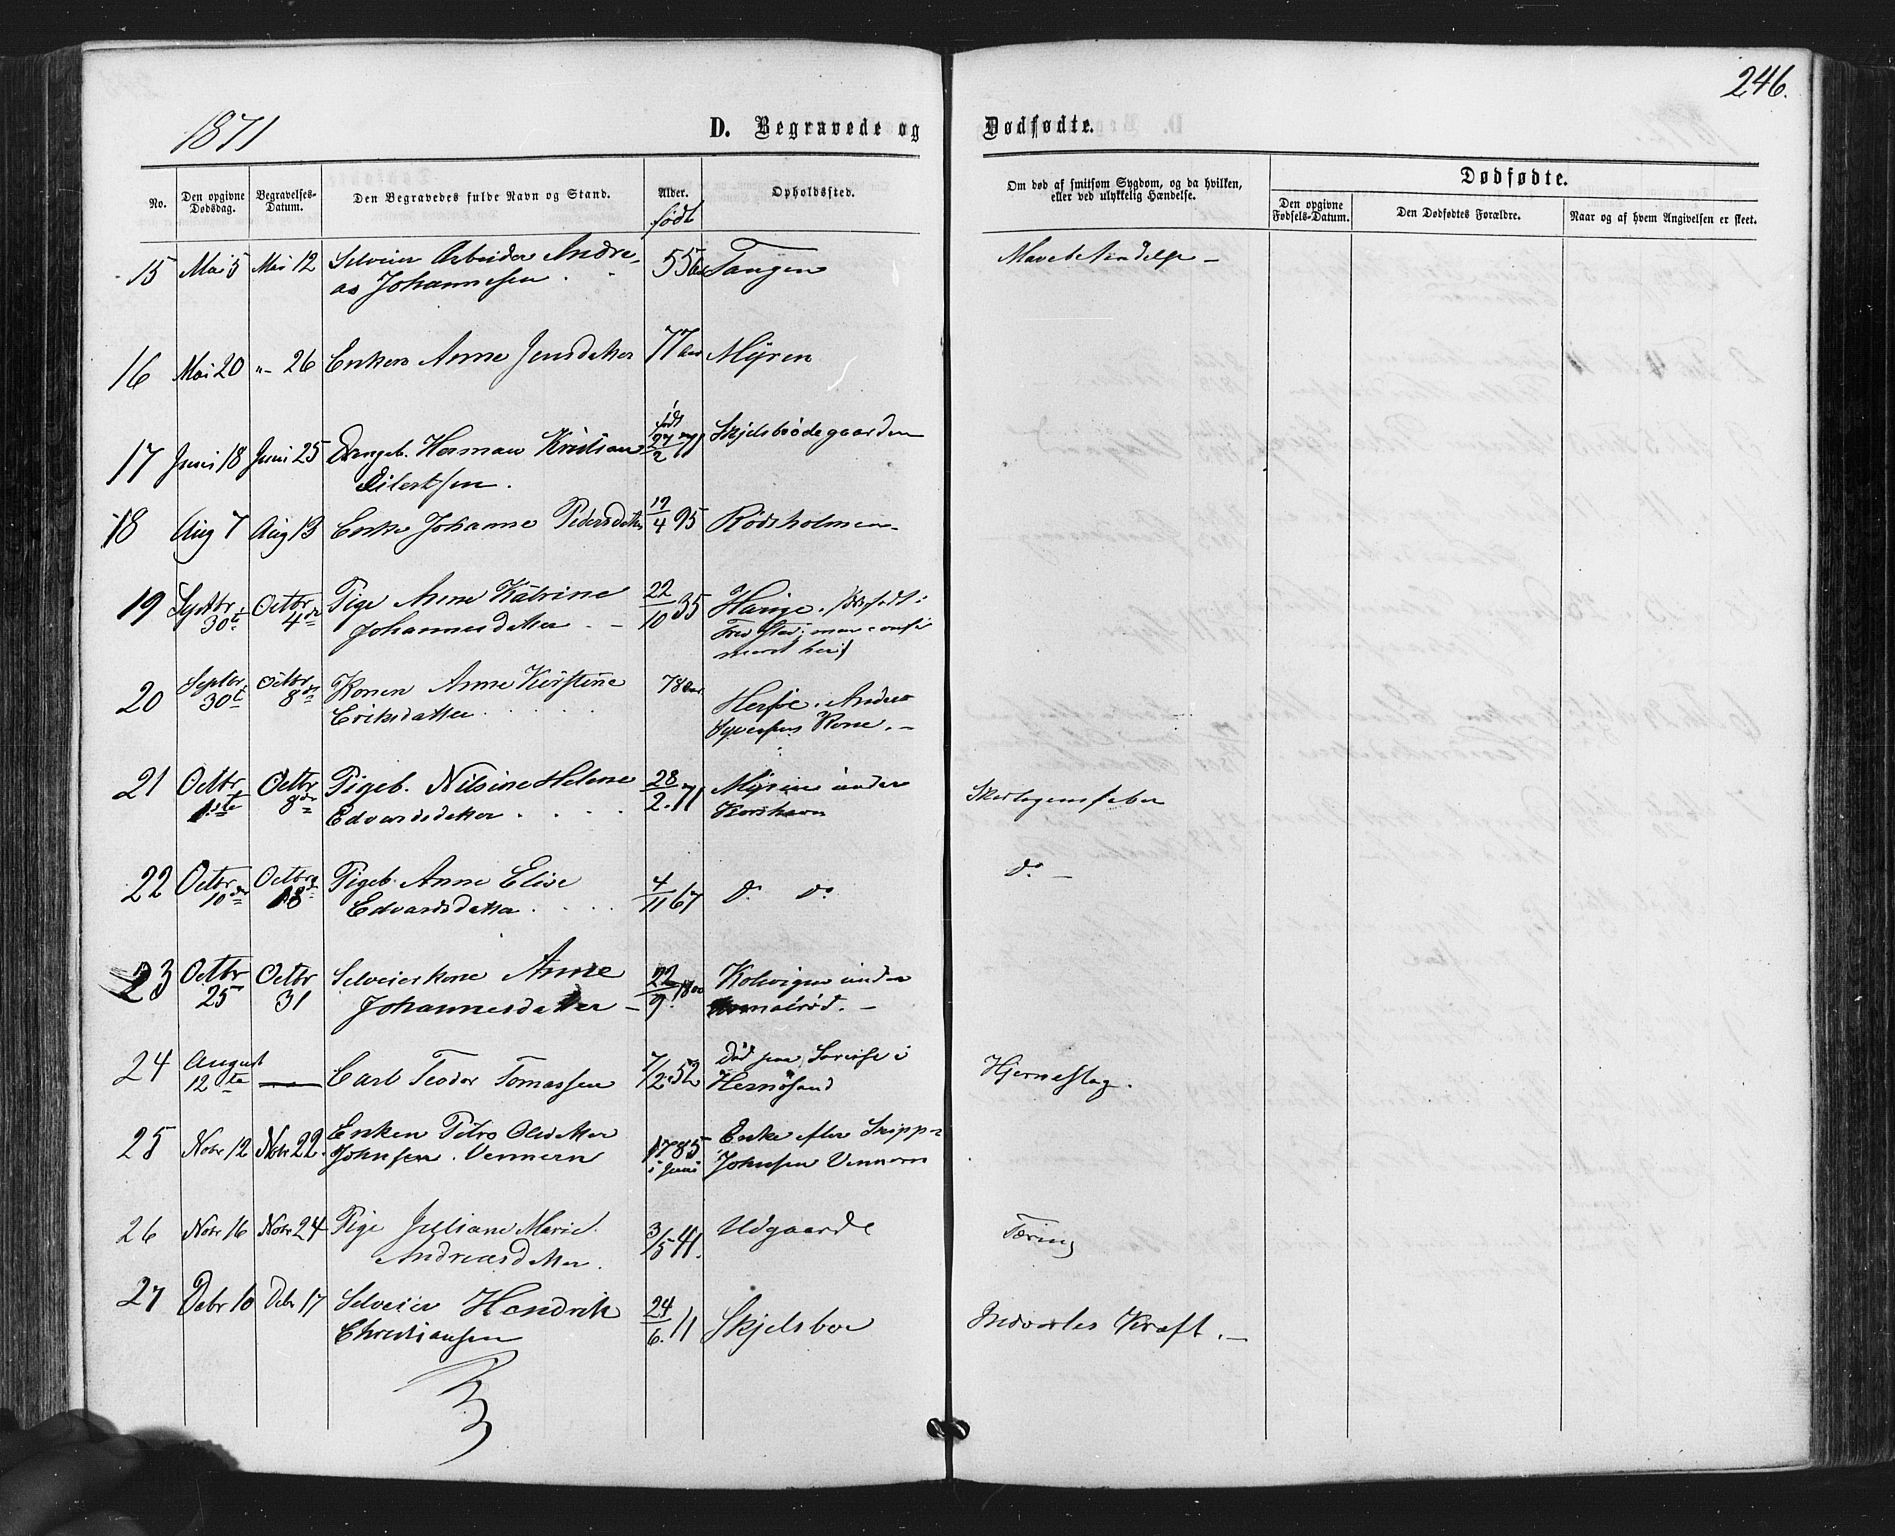 246.
1871
D. Begravede og Dødfødte.
No.
Den opgivne Dødsdag.
Begravelses-Datum.
Den Begravedes fulde Navn og Stand.
Alder.
født
Opholdssted.
Om død af smitsom Sygdom, og da hvilken, eller ved ulykkelig Hændelse.
Dødfødte.
Den opgivne Fødsels-Datum.
Den Dødfødtes Forældre.
Naar og af hvem Angivelsen er skeet.
15 Mai 5 Mai 12 Selveier Arbeider Andre-
as Johannesen
55 Tangen
16 Mai 20 "- 26 Enken Anne Jensdatter 77 Aar Myren
17 Juni 18 Juni 25 Drengeb. Herman Kristian
Eilertsen.
født 27/2 71 Skjelsbødegaarden
18 Aug 7 Aug 13 Enke Johanne Pedersdatter 17/4 95 Rødsholmen
19 Septbr 30te Octbr 4de Pige Anne Katrine
Johannesdatter
22/10 35 Hauge.
20 Septbr 30te Octbr 8de Konen Anne Kirstine
Eriksdatter
78 Aar Kone.
21 Octbr 1ste Octbr 8de Pigeb. Nilsine Helene
Edvardsdatter
28/2 71 Myren under
Korshavn
Skarlagensfeber
22 Octbr 10de Octbr 18de Pigeb. Anne Elise
Edvardsdatter
4/11 67 Do Do
Do
23 Octbr 25 Octbr 31 Selveierkone Anne
Johannesdatter
22/9 1800 Kolvigen under
24 August 12te — Carl Teodor Tomassen 7/2 52 Død paa i
Hernøsand
Hjerneslag.
25 Novr 12 Novr 22. Enken Olesdatter
Johnsen Vennern
1785
i Juni
Enke efter Skipper
Johnsen Vennern
26 Novr 16 Novr 24 Pige Juliane Marie
Andreasdatter.
3/5 41. Udgaarde
Tæring
27 Debr 10 Debr 17 Selveier Hendrik
Christiansen
24/6 11 Skjelsboe
Indvortes Kræft.